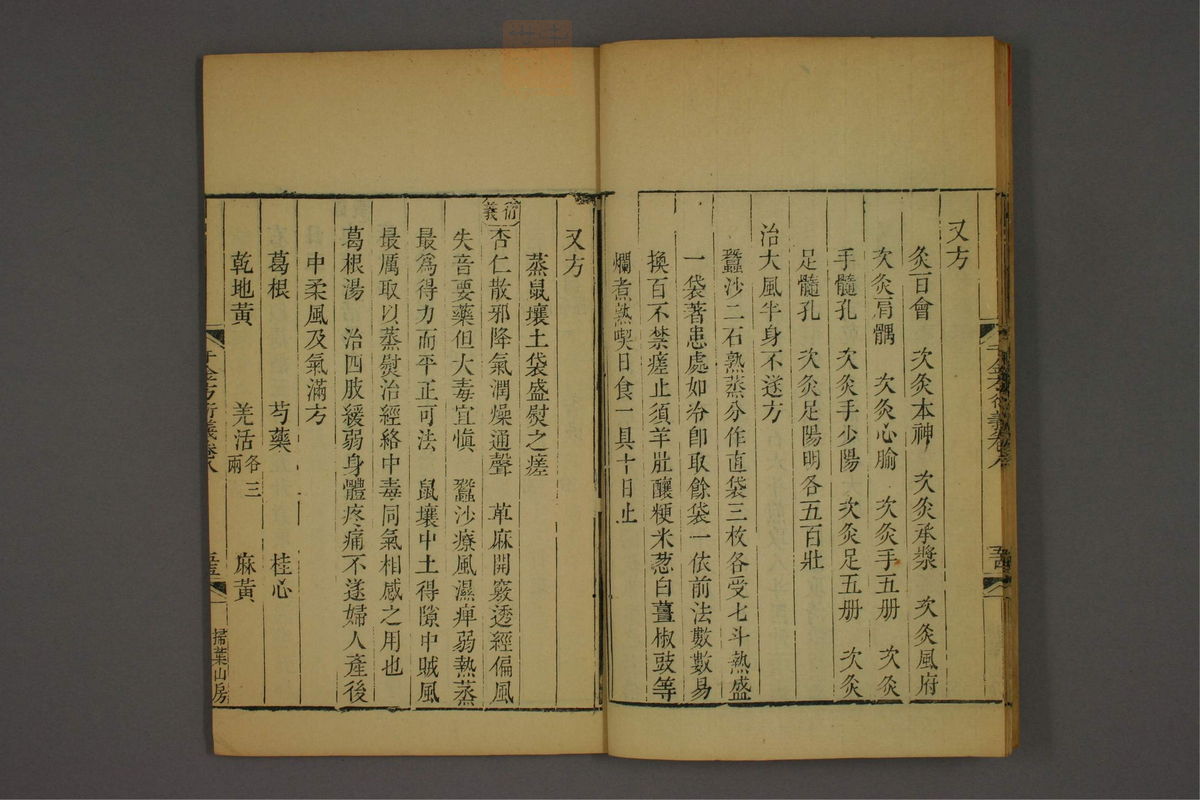 又方
灸百會　次灸本神　次灸承漿　次灸風府
次灸肩髃　次灸心腧　次灸手五册　次灸
手髓孔　次灸手少陽　次灸足五册　次灸
足髓孔　次灸足陽明各五百壯
治大風半身不遂方
蠶沙二石熟蒸分作直袋三枚各受七斗熱盛
一袋著患處如冷卽取餘袋一依前法數數易
換百不禁瘥止須羊肚釀粳米葱白薑椒豉等
爛煮熟喫日食一具十日止
千金方衍義卷八
又方
蒸鼠壤土袋盛熨之瘥
衍義
杏仁散邪降氣潤燥通聲　萆麻開竅透經偏風
失音要藥但大毒宜愼　蠶沙療風濕痺弱熱蒸
最爲得力而平正可法　鼠壤中土得隙中賊風
最厲取以蒸熨治經絡中毒同氣相感之用也
葛根湯　治四肢緩弱身體疼痛不遂婦人產後
中柔風及氣滿方
葛根　芍藥　桂心
乾地黃　羌活各三兩　麻黃
千金方衍義卷八
掃葉山房